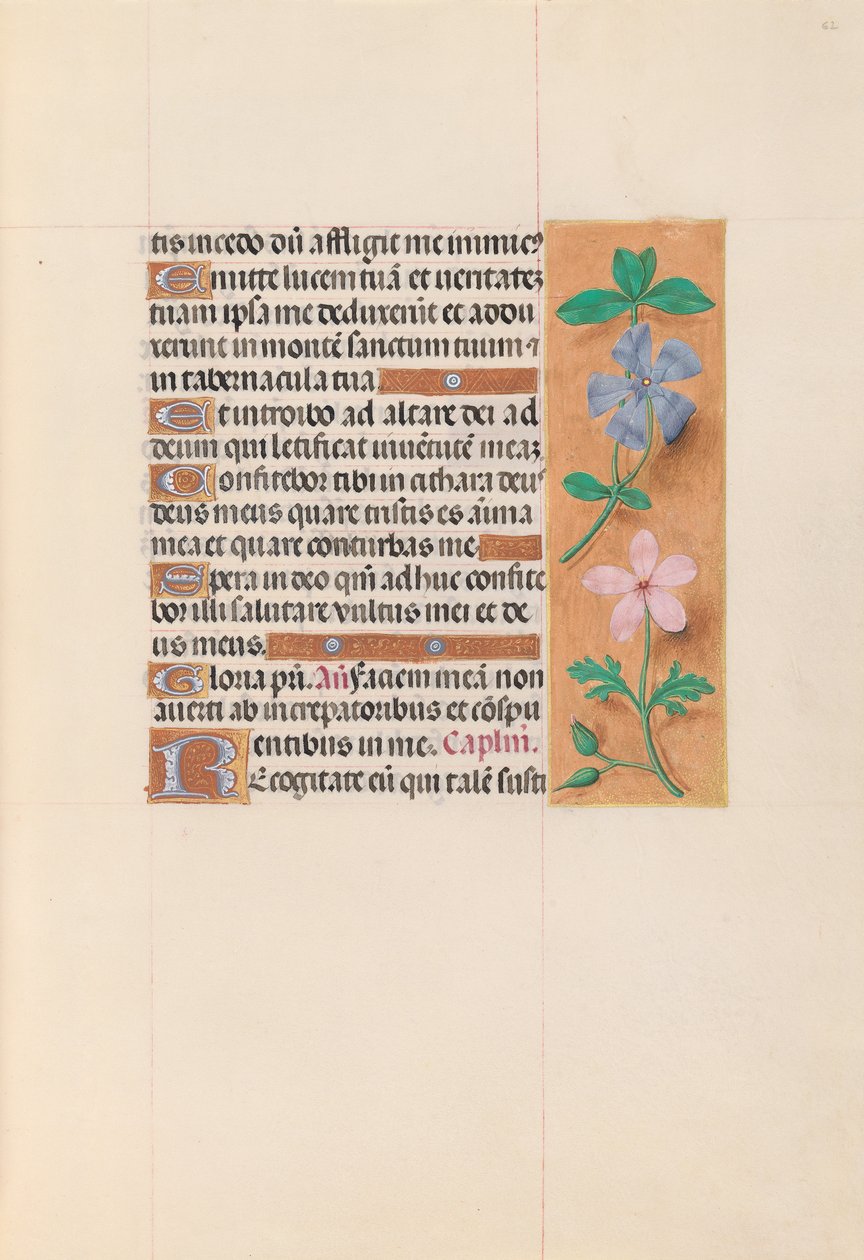 62
tis incedo dū affligit me inimicꝰ
Emitte lucem tuā et ueritateꝫ
tuam ipsa me deduxerūt et addu
xerunt in montē sanctum tuum ⁊
in tabernacula tua.
Et introibo ad altare dei ad
deum qui letificat iuuētutē meaꝫ.
Confitebor tibi in cithara deus
deus meus quare tristis es aīma
mea et quare conturbas me.
Spera in deo qm̄ adhuc confite
bor illi salutare vultus mei et de
us meus.
Gloria pr̄i. An̄ Faciem meā non
auerti ab increpatoribus et cōspu
entibus in me. Caplm̄.
REcogitate eū qui talē susti